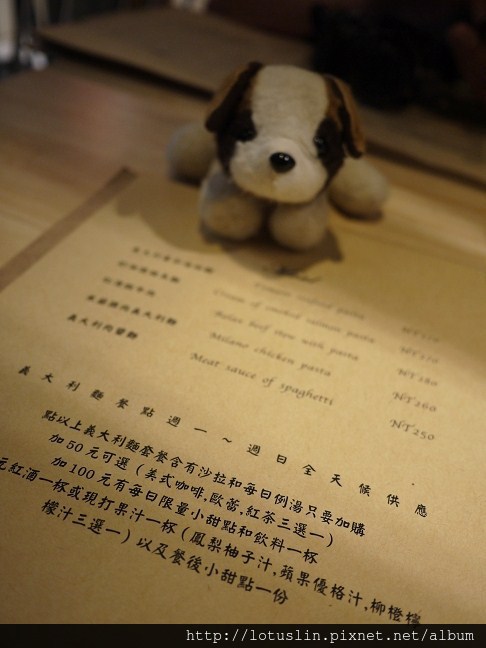 Cream of smoked salmon pasta
Relax beef stew with pasta NT280
Milano chicken pasta NT260
義大利肉醬麵 Meat sauce of spaghetti NT250
義大利麵餐點週一~週日全天候供應
點以上義大利麵套餐含有沙拉和每日例湯只要加購
加50元可選(美式咖啡,歐蕾,紅茶三選一)
加100元有每日限量小甜點和飲料一杯
元紅酒一杯或現打果汁一杯(鳳梨柚子汁,蘋果優格汁,柳橙檸
檬汁三選一)以及餐後小甜點一份
http://lotuslin.pixnet.net/album